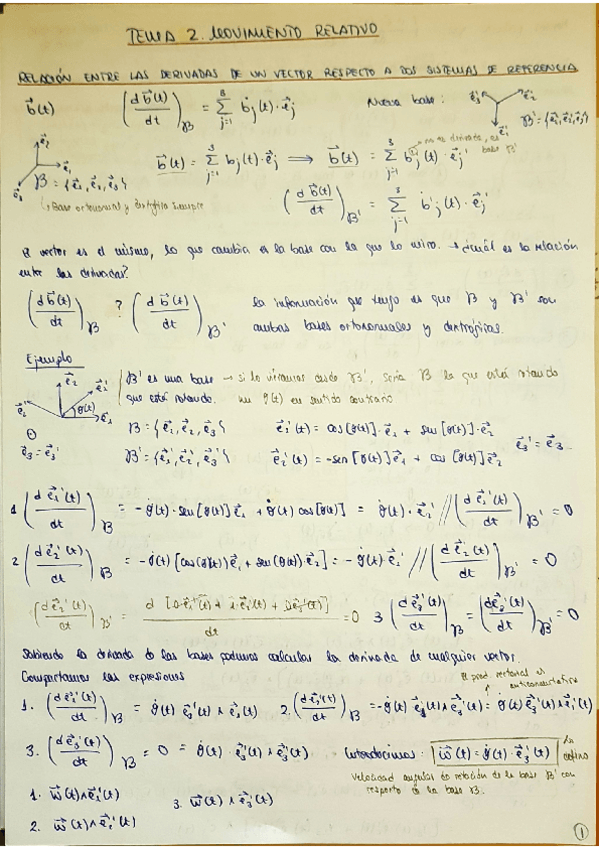 TEMA 2. MOVIMIENTO RELATIVO
RELACIÓN ENTRE LAS DERIVADAS DE UN VECTOR RESPECTO A DOS SISTEMAS DE REFERENCIA
b⃗(t) (d b⃗(t)/dt)_B = Σ_{j=1}^{3} ḃ_j(t)·e⃗_j Nueva base: e⃗_3' e⃗_2' e⃗_1' B' = {e⃗_1', e⃗_2', e⃗_3'}
e⃗_2 e⃗_1 e⃗_3 B = {e⃗_1, e⃗_2, e⃗_3} b⃗(t) = Σ_{j=1}^{3} b_j(t)·e⃗_j ⟹ b⃗(t) = Σ_{j=1}^{3} b_j'(t)·e⃗_j' no es derivada, es base B'
Base ortonormal y dextrógira siempre (d b⃗(t)/dt)_B' = Σ_{j=1}^{3} ḃ'_j(t)·e⃗_j'
El vector es el mismo, lo que cambia es la base con la que lo miro. → ¿cuál es la relación
entre las derivadas?
(d b⃗(t)/dt)_B ? (d b⃗(t)/dt)_B' La información que tengo es que B y B' son
ambas bases ortonormales y dextrógiras.
Ejemplo
e⃗_2 e⃗_1' e⃗_2' φ(t) e⃗_1 B' es una base → si lo viéramos desde B', sería B la que está rotando
que está rotando. un φ(t) en sentido contrario
e⃗_3 = e⃗_3' B = {e⃗_1, e⃗_2, e⃗_3} e⃗_1'(t) = cos[φ(t)]·e⃗_1 + sen[φ(t)]·e⃗_2 e⃗_3' = e⃗_3
B' = {e⃗_1', e⃗_2', e⃗_3'} e⃗_2'(t) = -sen[φ(t)]e⃗_1 + cos[φ(t)]e⃗_2
1 (d e⃗_1'(t)/dt)_B = -φ̇(t)·sen[φ(t)]e⃗_1 + φ̇(t) cos[φ(t)] = φ̇(t)·e⃗_2' // (d e⃗_1'(t)/dt)_B' = 0
2 (d e⃗_2'(t)/dt)_B = -φ̇(t)[cos(φ(t))e⃗_1 + sen(φ(t))·e⃗_2] = -φ̇(t)·e⃗_1' // (d e⃗_2'(t)/dt)_B' = 0
(d e⃗_2'(t)/dt)_B' = d [0·e⃗_1'(t) + 1·e⃗_2'(t) + 0e⃗_3'(t)]/dt = 0 3 (d e⃗_3'(t)/dt)_B = (d e⃗_3'(t)/dt)_B' = 0
Sabiendo la derivada de las bases podemos calcular la derivada de cualquier vector.
Compactamos las expresiones El prod. vectorial es anticonmutativo
1. (d e⃗_1'(t)/dt)_B = φ̇(t) e⃗_3'(t) ∧ e⃗_1'(t) 2. (d e⃗_2'(t)/dt)_B = -φ̇(t) e⃗_2'(t) ∧ e⃗_3'(t) = φ̇(t) e⃗_3'(t) ∧ e⃗_2'(t)
3. (d e⃗_3'(t)/dt)_B = 0 = φ̇(t)·e⃗_3'(t) ∧ e⃗_3'(t) Introducimos: w⃗(t) = φ̇(t)·e⃗_3'(t) La defino
Velocidad angular de rotación de la base B' con
respecto de la base B.
1. w⃗(t) ∧ e⃗_1'(t) 3. w⃗(t) ∧ e⃗_3'(t)
2. w⃗(t) ∧ e⃗_2'(t)
1